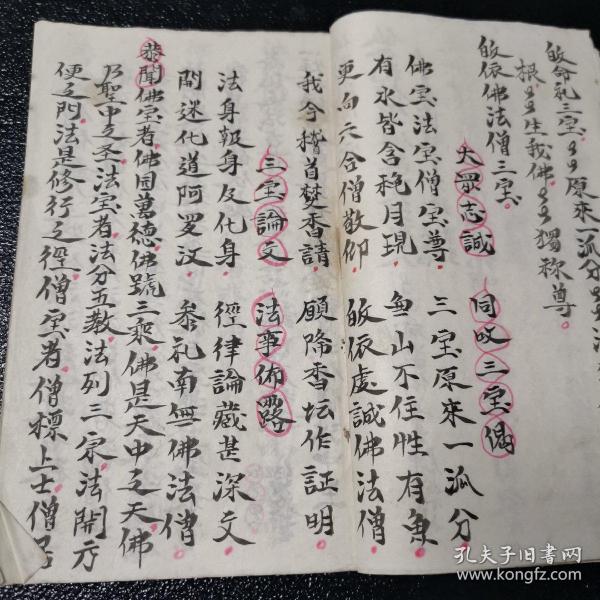 皈命礼三宝。〻原來一派分〻法
根〻〻生我佛〻〻獨称尊。
皈依佛法僧三宝。
大眾志誠 同叹三宝偈
佛宝法宝僧宝尊 三宝原來一派分
有水皆含秾月現 無山不住性有魚
更向六合僧敬仰 皈依處誠佛法僧
我今稽首焚香請 願降香坛作証明
三宝論文 法事佈露
法身報身及化身 經律論藏甚深文
開迷化道阿罗汉 叅礼南無佛法僧
恭聞佛宝者佛因萬德佛號三乘佛是天中之天佛
乃聖中之圣法宝者法分五教法列三宗法開方
便之門法是修行之徑僧宝者僧標上士僧居
孔夫子旧书网
www.kongfz.com